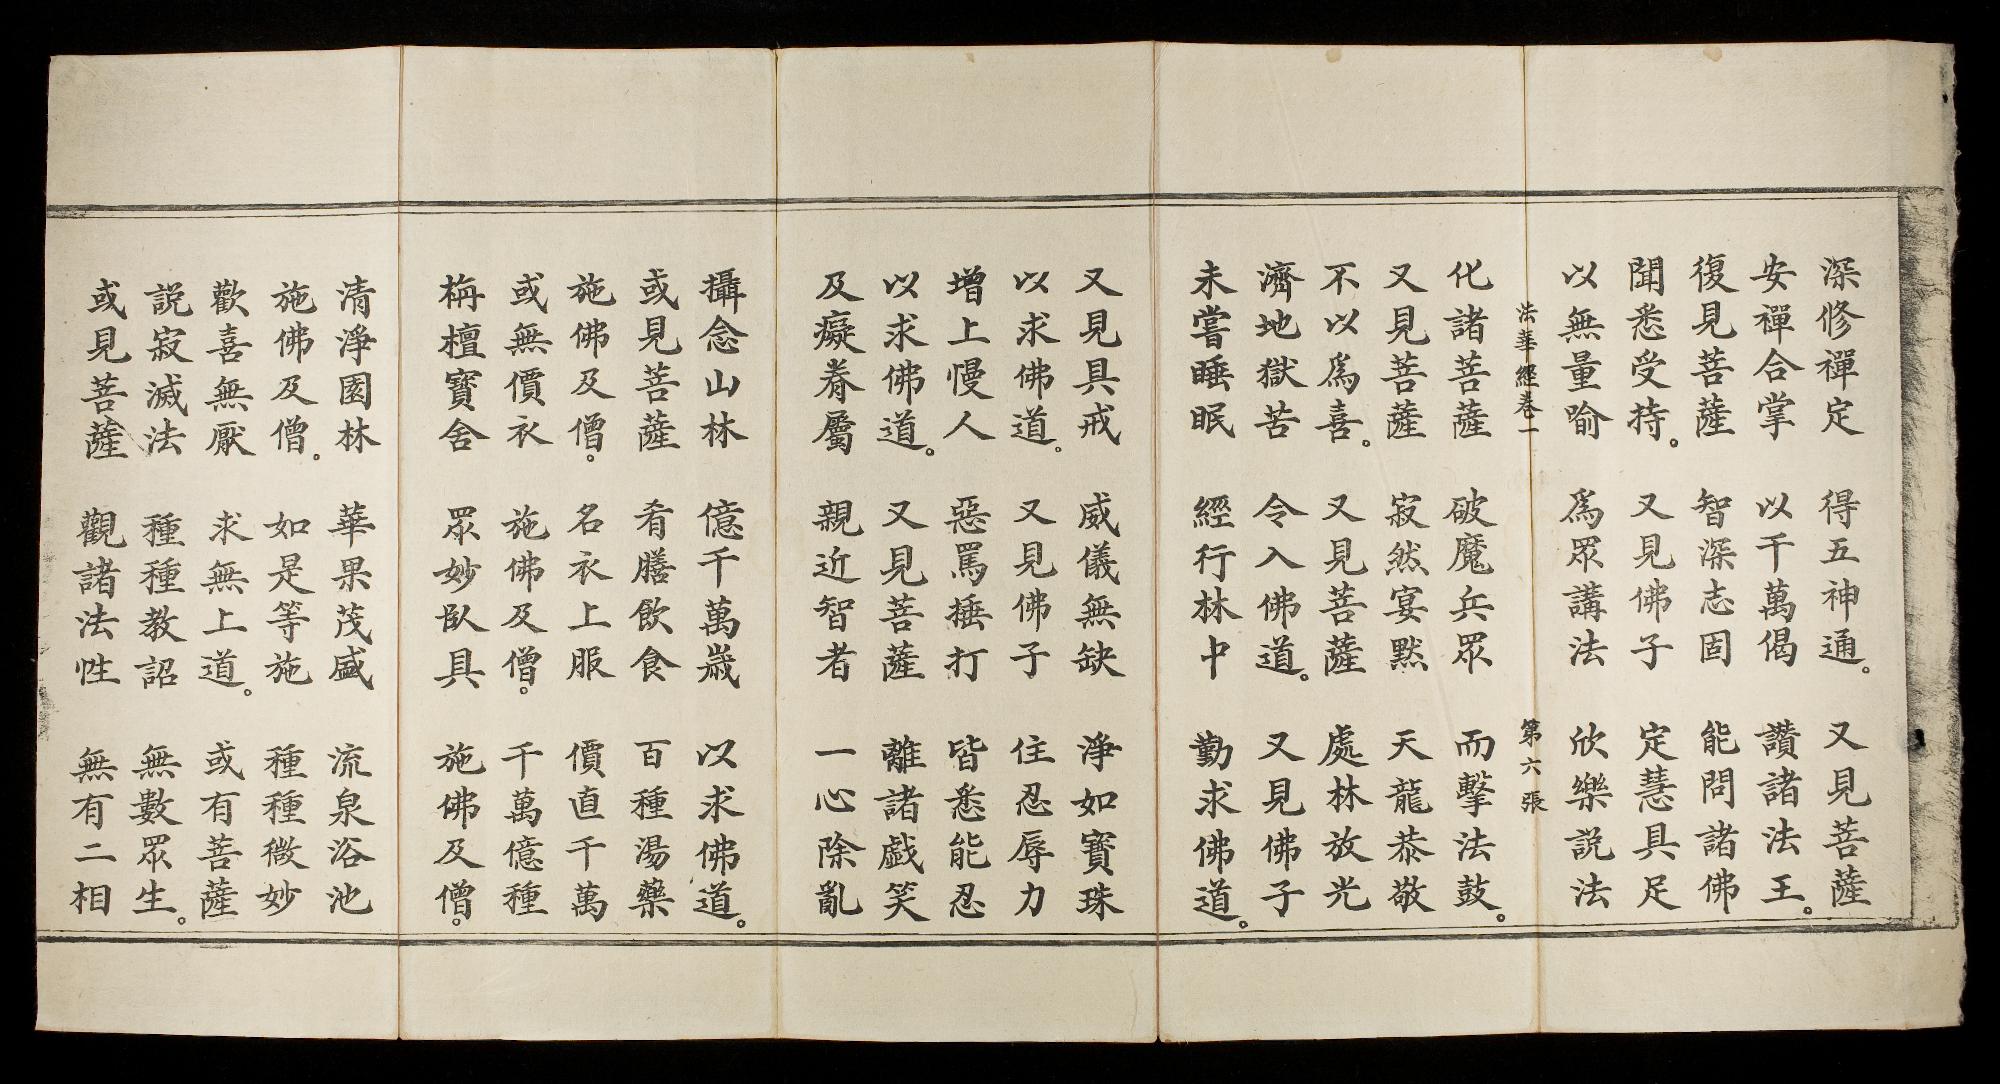 深修禪定 得五神通。 又見菩薩
安禪合掌 以千萬偈 讚諸法王。
復見菩薩 智深志固 能問諸佛
聞悉受持。 又見佛子 定慧具足
以無量喻 爲眾講法 欣樂説法
法華經卷一 第六張
化諸菩薩 破魔兵眾 而擊法鼓。
又見菩薩 寂然宴默 天龍恭敬
不以爲喜。 又見菩薩 處林放光
濟地獄苦 令入佛道。 又見佛子
未嘗睡眠 經行林中 勤求佛道。
又見具戒 威儀無缺 淨如寶珠
以求佛道。 又見佛子 住忍辱力
增上慢人 惡罵捶打 皆悉能忍
以求佛道。 又見菩薩 離諸戲笑
及癡眷屬 親近智者 一心除亂
攝念山林 億千萬歲 以求佛道。
或見菩薩 肴膳飲食 百種湯藥
施佛及僧。 名衣上服 價直千萬
或無價衣 施佛及僧。 千萬億種
栴檀寶舍 眾妙臥具 施佛及僧。
清淨園林 華果茂盛 流泉浴池
施佛及僧。 如是等施 種種微妙
歡喜無厭 求無上道。 或有菩薩
説寂滅法 種種教詔 無數眾生。
或見菩薩 觀諸法性 無有二相